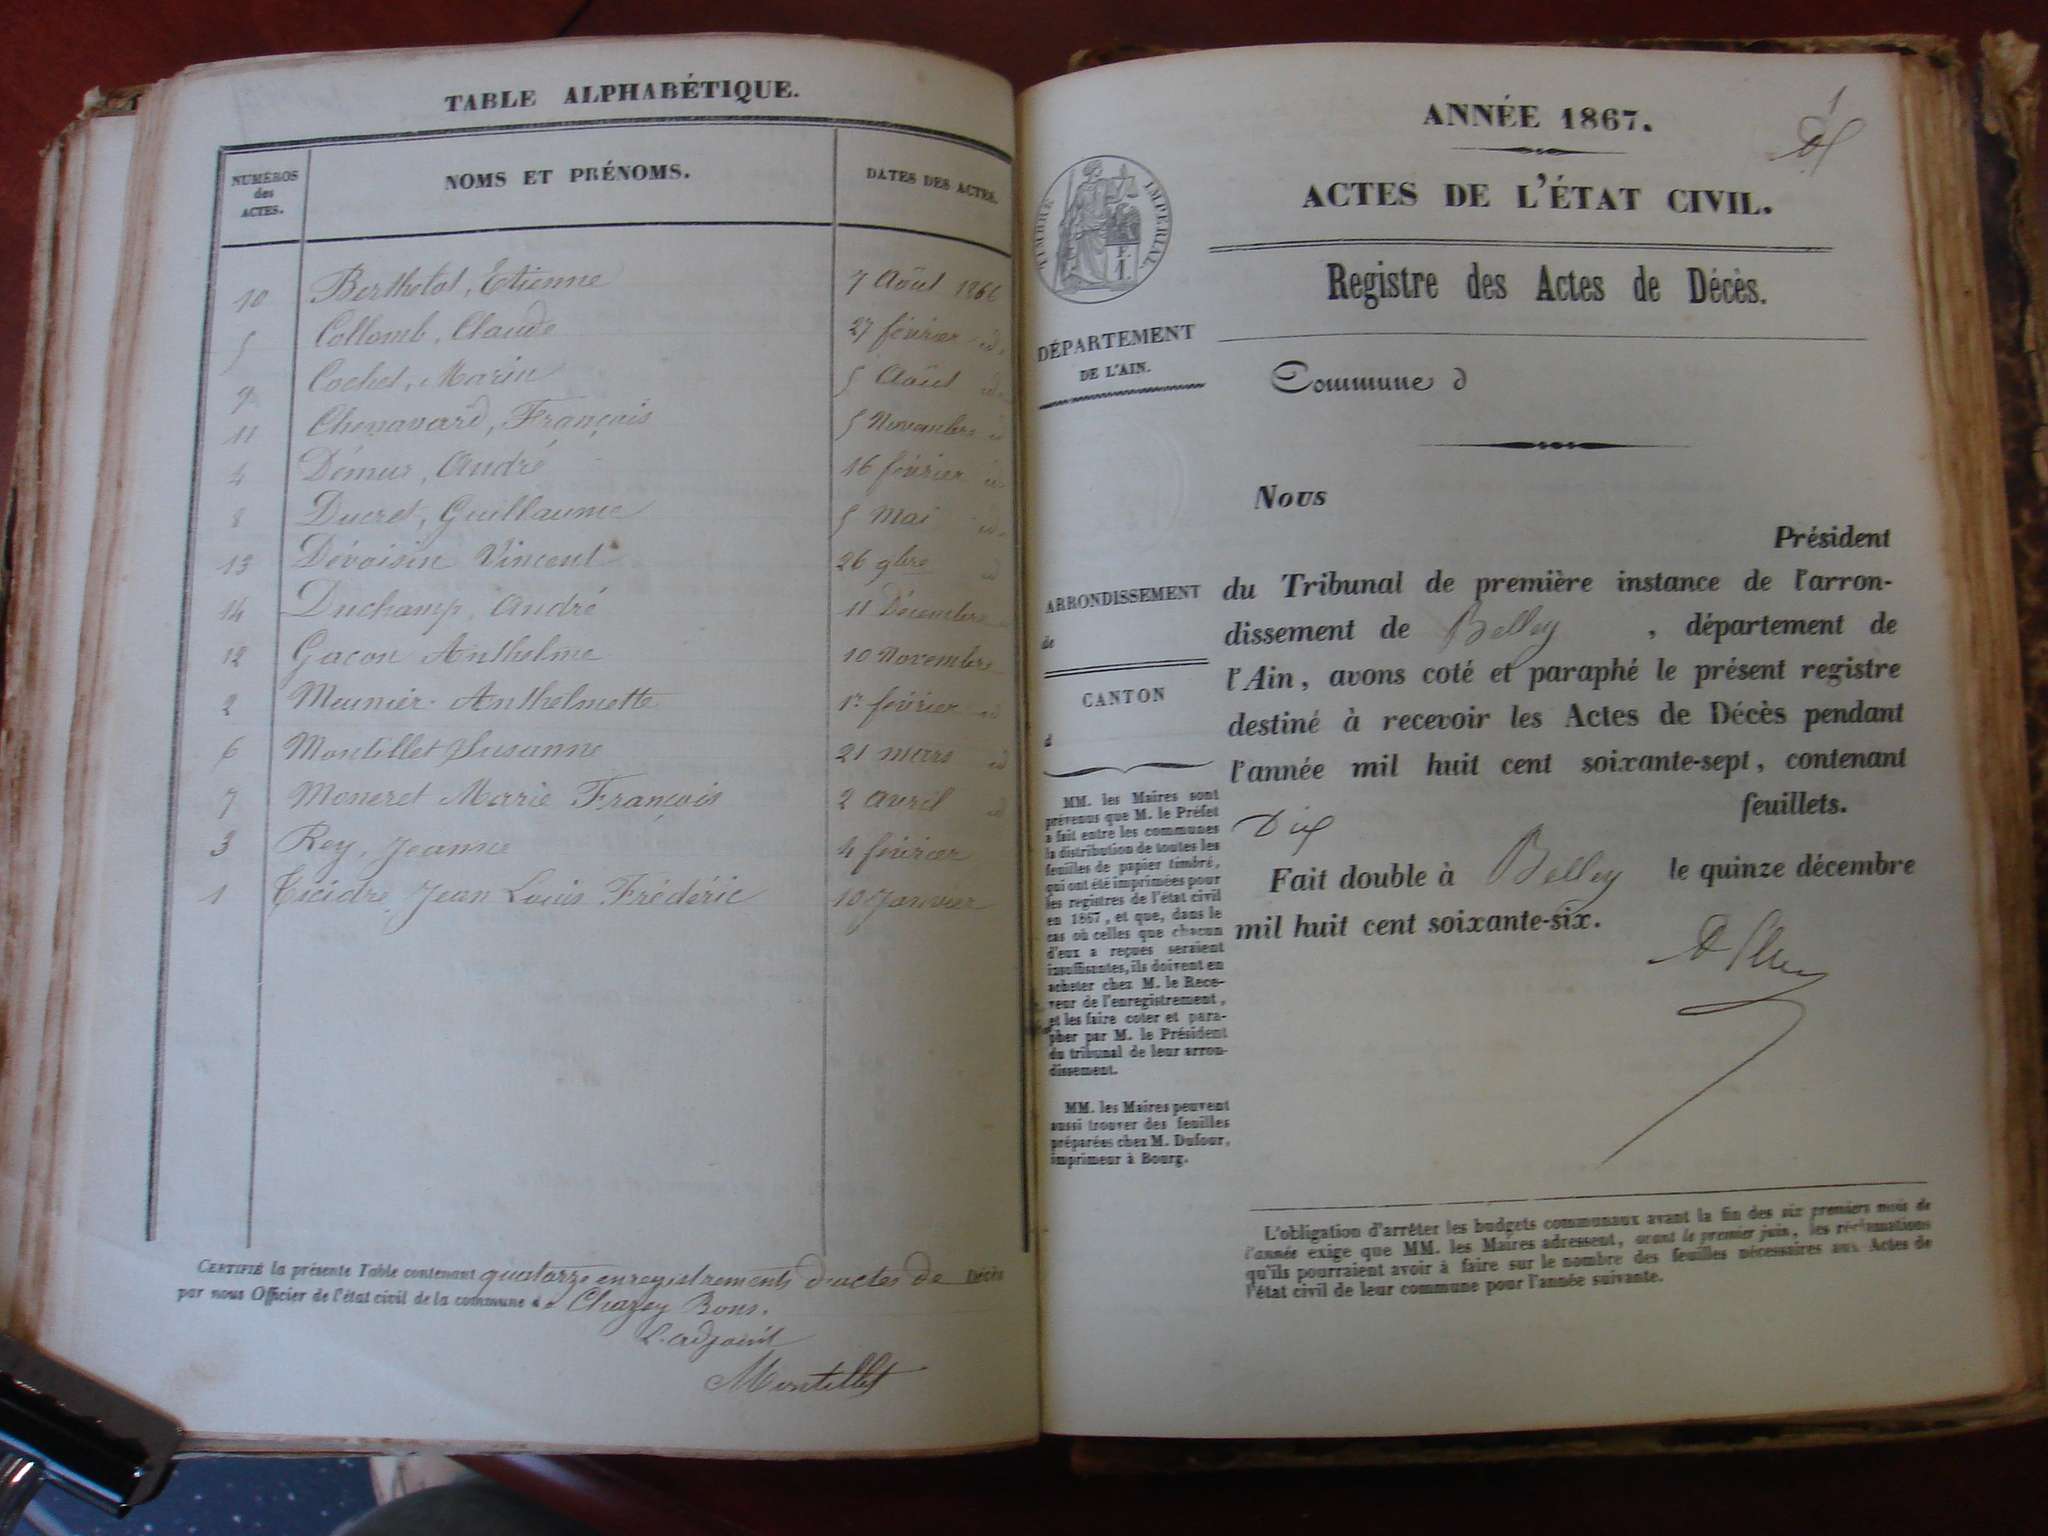 TABLE ALPHABÉTIQUE.
NUMÉROS des ACTES. NOMS ET PRÉNOMS. DATES DES ACTES.
10 Berthelot, Etienne 7 Août 1866
5 Collomb, Claude 27 février id.
9 Cochet, Marin 5 Août id.
11 Chenavard, François 5 Novembre id
4 Démur, André 16 février id
8 Ducret, Guillaume 5 Mai id.
13 Dévoisin Vincent 26 9bre id
14 Duchamp, André 11 Décembre
12 Gacon Anthelme 10 Novembre
2 Meunier Anthelmette 1r février id
6 Montillet Susanne 21 mars id
7 Moneret Marie François 2 Avril id
3 Rey, Jeanne 4 février
1 Jean Louis Frédéric 10 Janvier
CERTIFIÉ la présente Table contenant quatorze enregistrements d'actes de Décès
par nous Officier de l'état civil de la commune de Chazey Bons.
L'adjoint
Montillet
1
ANNÉE 1867.
ACTES DE L'ÉTAT CIVIL.
TIMBRE IMPÉRIAL
Registre des Actes de Décès.
DÉPARTEMENT
DE L'AIN.
Commune d
Nous
Président
du Tribunal de première instance de l'arron-
dissement de Belley , département de
l'Ain, avons coté et paraphé le présent registre
destiné à recevoir les Actes de Décès pendant
l'année mil huit cent soixante-sept, contenant
Dix feuillets.
Fait double à Belley le quinze décembre
mil huit cent soixante-six.
ARRONDISSEMENT
de
CANTON
d
MM. les Maires sont
prévenus que M. le Préfet
a fait entre les communes
la distribution de toutes les
feuilles de papier timbré,
qui ont été imprimées pour
les registres de l'état civil
en 1867, et que, dans le
cas où celles que chacun
d'eux a reçues seraient
insuffisantes, ils doivent en
acheter chez M. le Rece-
veur de l'enregistrement,
et les faire coter et para-
pher par M. le Président
du tribunal de leur arron-
dissement.
MM. les Maires peuvent
aussi trouver des feuilles
préparées chez M. Dufour,
imprimeur à Bourg.
L'obligation d'arrêter les budgets communaux avant la fin des six premiers mois de
l'année exige que MM. les Maires adressent, avant le premier juin, les réclamations
qu'ils pourraient avoir à faire sur le nombre des feuilles nécessaires aux Actes de
l'état civil de leur commune pour l'année suivante.